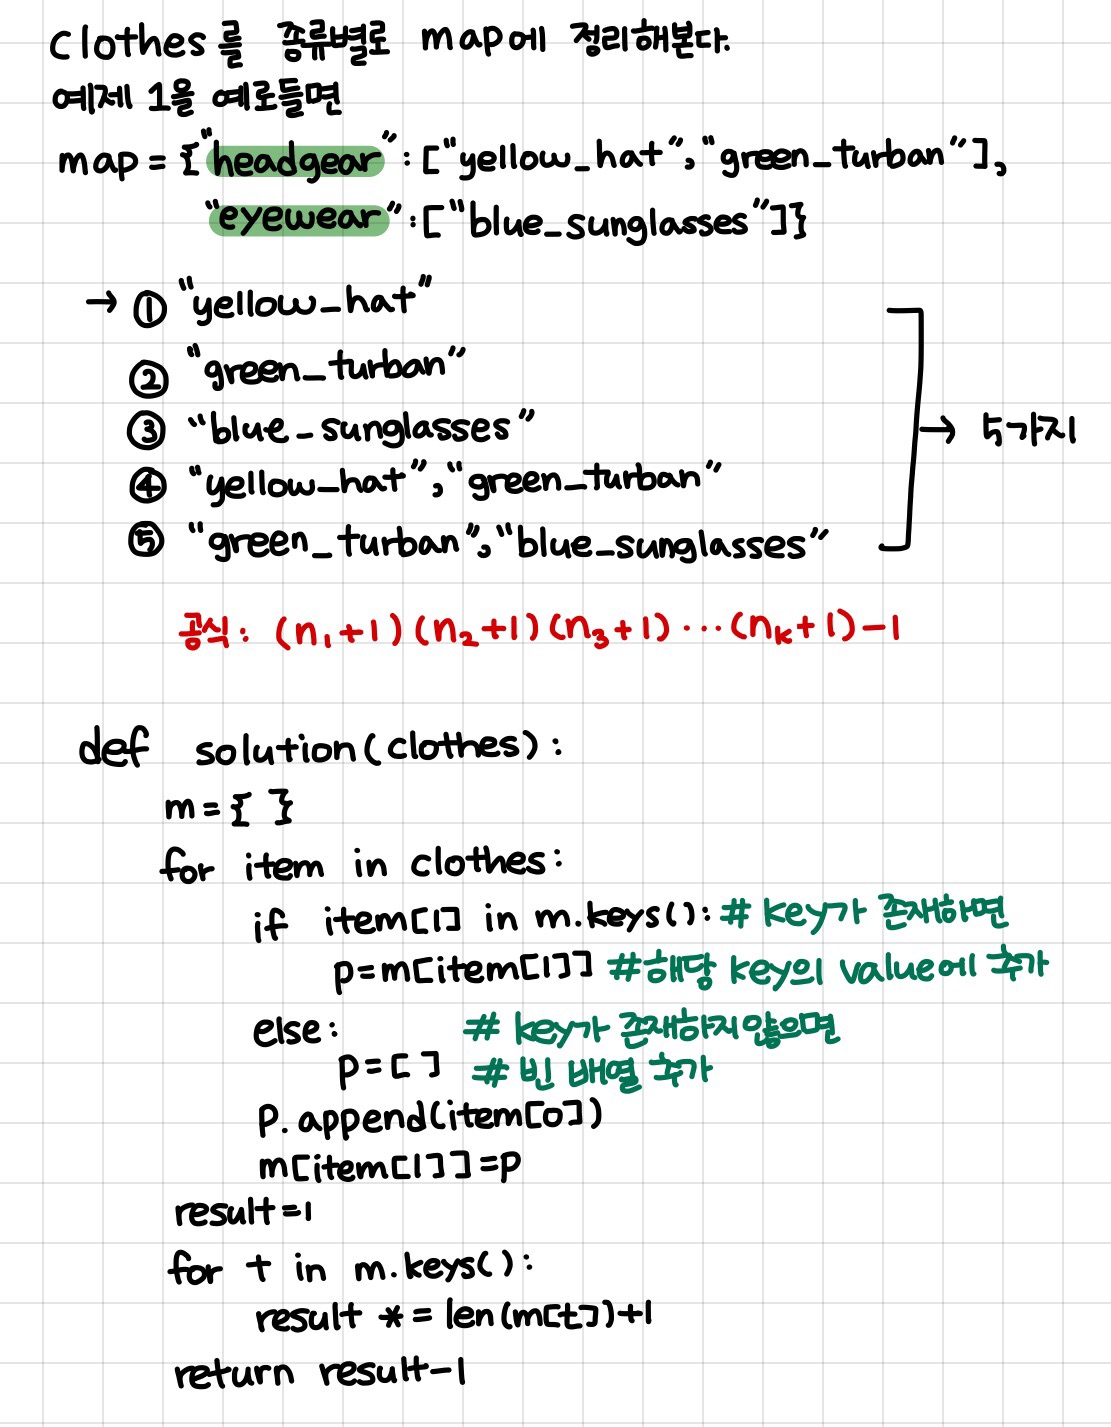 clothes를 종류별로 map에 정리해본다.
예제 1을 예로들면
map = {"headgear":["yellow_hat","green_turban"],
"eyewear":["blue_sunglasses"]}
→ ① "yellow_hat"
② "green_turban"
③ "blue_sunglasses"
④ "yellow_hat","green_turban"
⑤ "green_turban","blue_sunglasses"
→ 5가지
공식: (n₁+1)(n₂+1)(n₃+1)...(nₖ+1)-1
def solution(clothes):
m={ }
for item in clothes:
if item[1] in m.keys(): # key가 존재하면
p=m[item[1]] #해당 key의 value에 추가
else: # key가 존재하지않으면
p=[ ] # 빈 배열 추가
p.append(item[0])
m[item[1]]=p
result=1
for t in m.keys():
result *= len(m[t])+1
return result-1